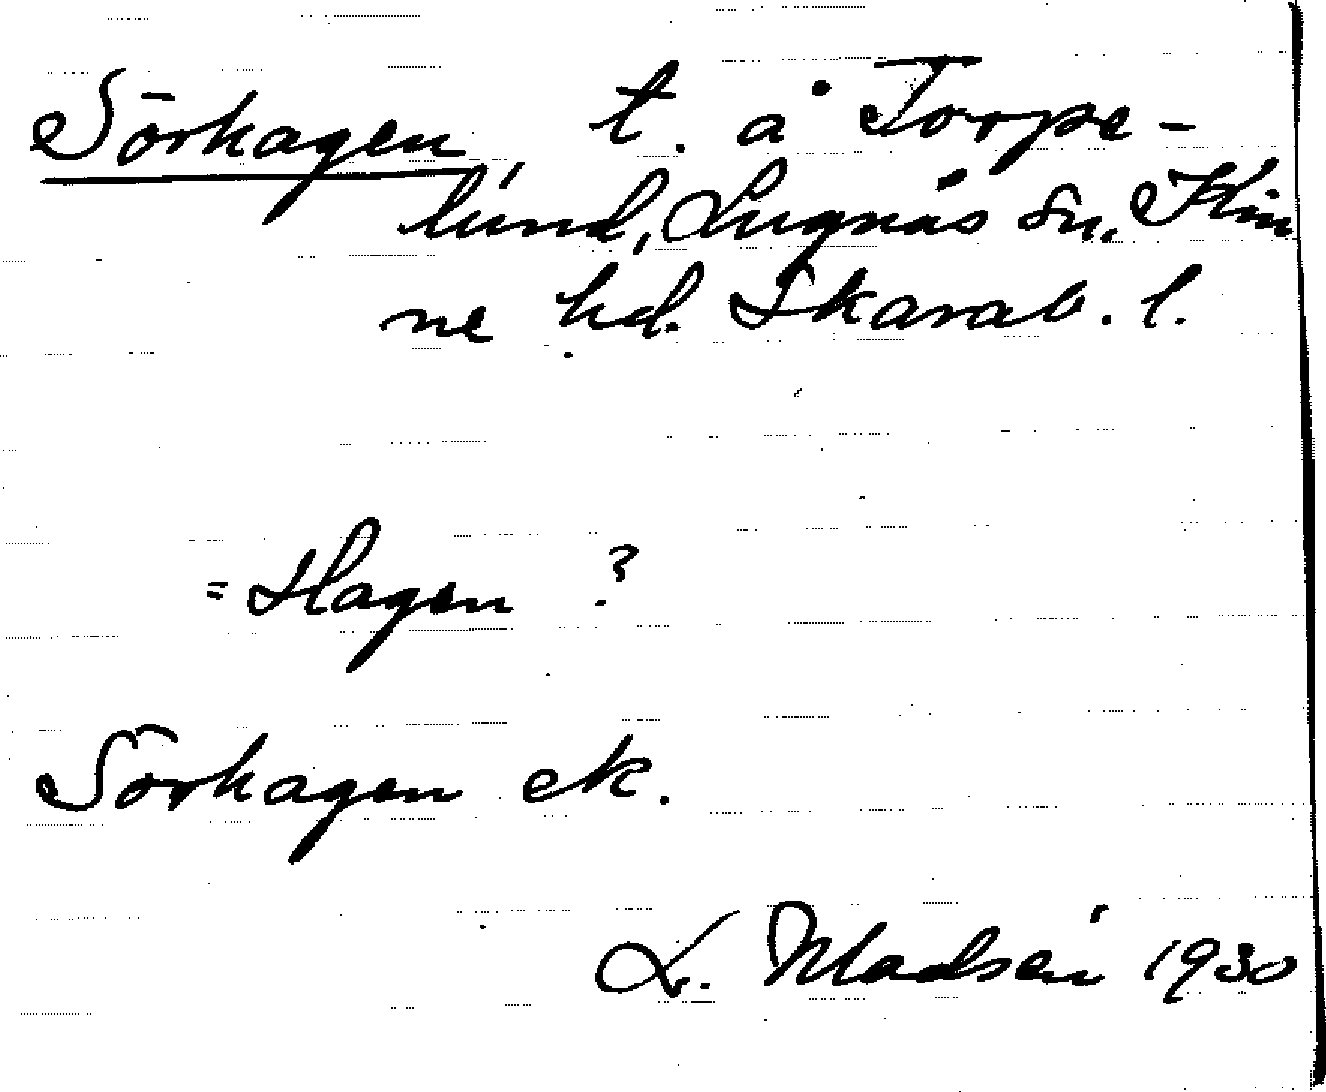 Sörhagen, t. å Torpe-
lund, Lugnås sn. Kin
ne hd. Skarab. l.
= Hagen ?
Sörhagen ek.
L. Madsén 1930